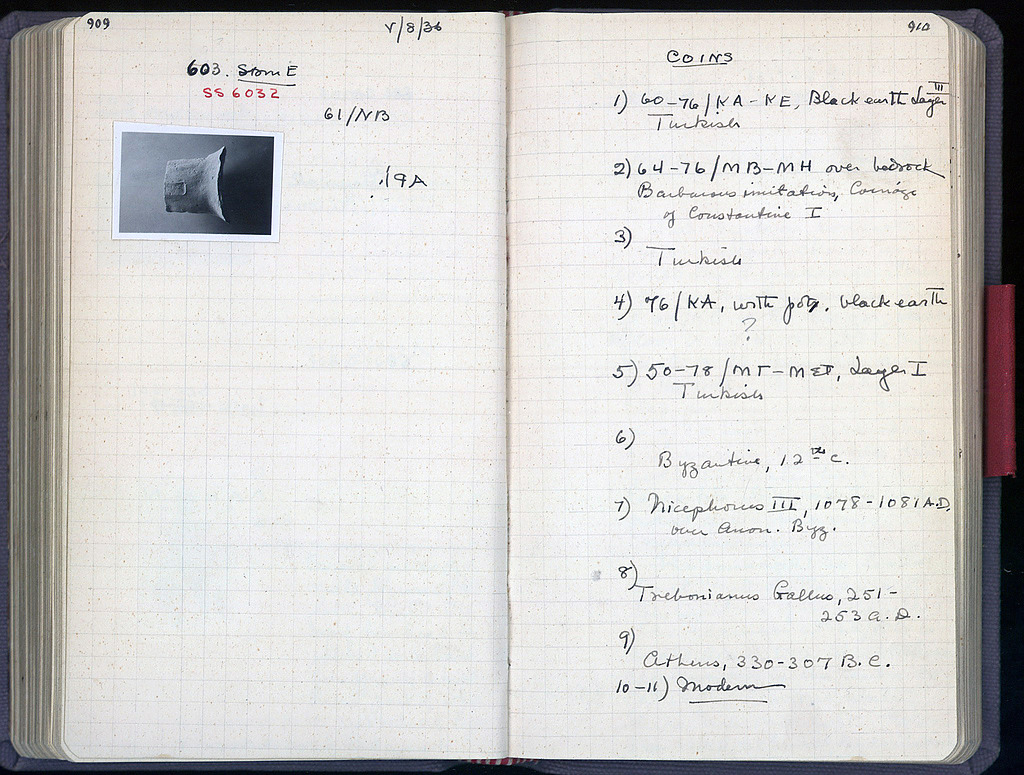 909
V/8/36
603. Stam E
SS 6032
61/NB
./9A
910
COINS
1) 60-76/KA-KE, Black earth Layer III
Turkish
2) 64-76/MB-MH over bedrock
Barbarous imitation, Coinage
of Constantine I
3)
Turkish
4) 76/KA, with pot, black earth
?
5) 50-78/MT- Layer I
Turkish
6)
Byzantine, 12th c.
7) Nicephorus III, 1078-1081 A.D.
over Anon. Byz.
8)
Trebonianus Gallus, 251-
253 A.D.
9)
Athens, 330-307 B.C.
10-11) Modern